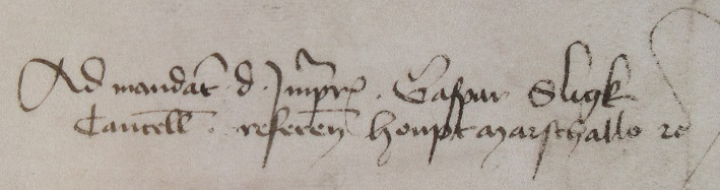 Ad mandat d. Impr. Caspar Sligk
Cancell. referen houptmarschallo re